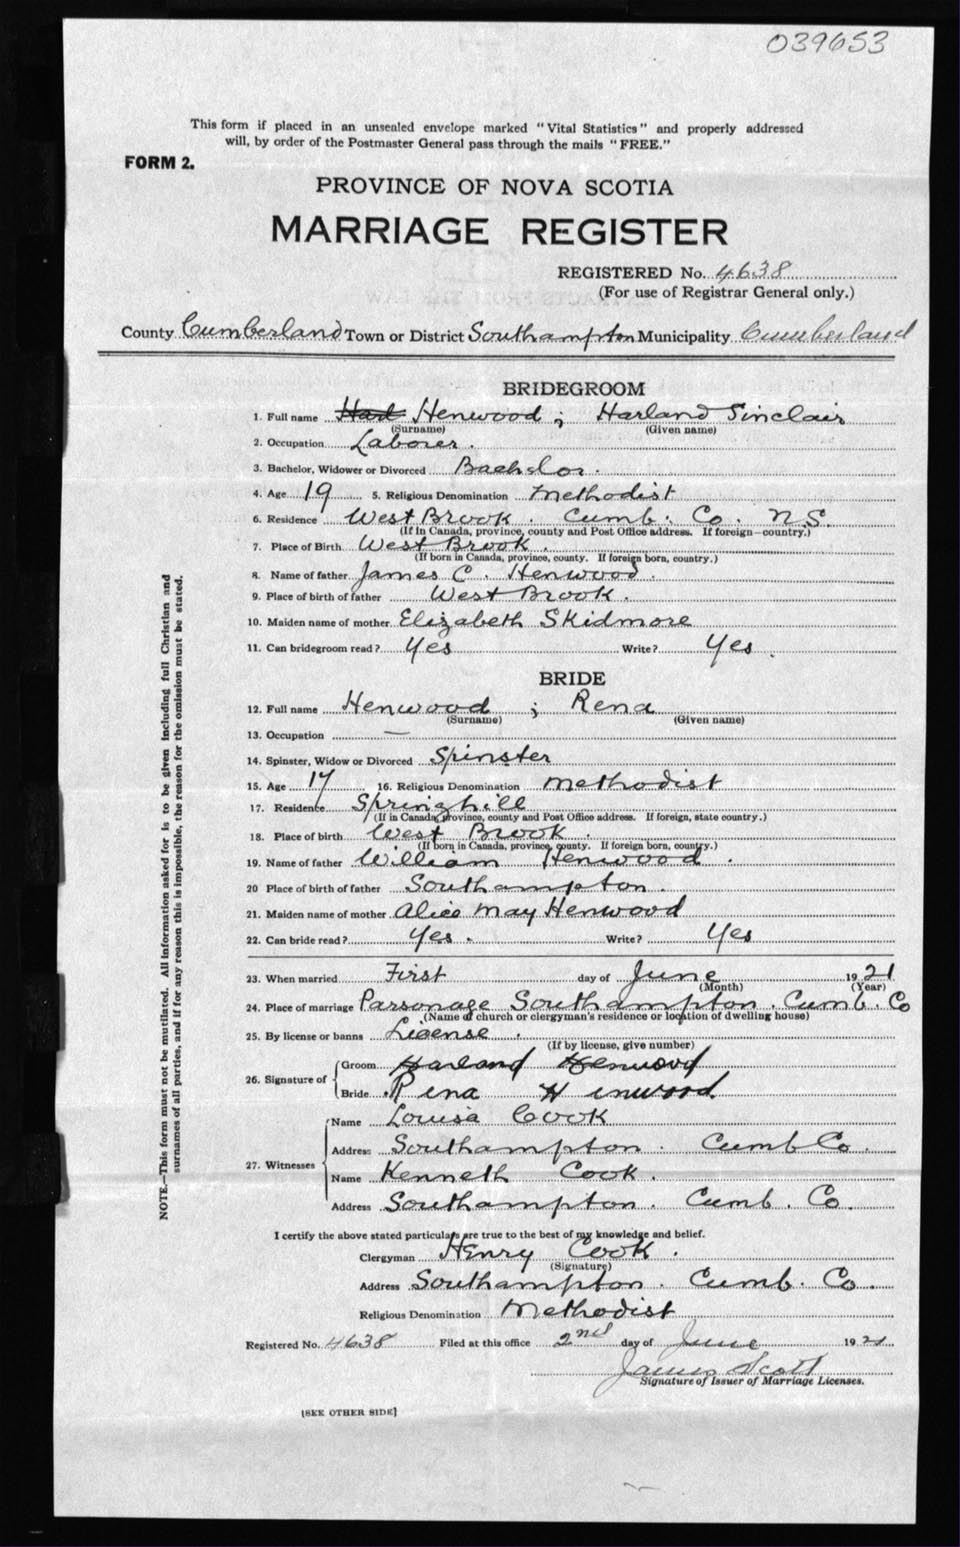 039653
This form if placed in an unsealed envelope marked "Vital Statistics" and properly addressed
will, by order of the Postmaster General pass through the mails "FREE."
FORM 2.
PROVINCE OF NOVA SCOTIA
MARRIAGE REGISTER
REGISTERED No. 4638
(For use of Registrar General only.)
County Cumberland Town or District Southampton Municipality Cumberland
BRIDEGROOM
1. Full name Henwood; Harland Sinclair
(Surname) (Given name)
2. Occupation Laborer.
3. Bachelor, Widower or Divorced Bachelor.
4. Age 19 5. Religious Denomination Methodist
6. Residence West Brook. Cumb. Co. N.S.
(If in Canada, province, county and Post Office address. If foreign—country.)
7. Place of Birth West Brook.
(If born in Canada, province, county. If foreign born, country.)
8. Name of father James C. Henwood.
9. Place of birth of father West Brook.
10. Maiden name of mother Elizabeth Skidmore
11. Can bridegroom read? Yes Write? Yes.
BRIDE
12. Full name Henwood ; Rena
(Surname) (Given name)
13. Occupation —
14. Spinster, Widow or Divorced Spinster
15. Age 17 16. Religious Denomination Methodist
17. Residence Springhill
(If in Canada, province, county and Post Office address. If foreign, state country.)
18. Place of birth West Brook.
(If born in Canada, province, county. If foreign born, country.)
19. Name of father William Henwood.
20 Place of birth of father Southampton.
21. Maiden name of mother Alice May Henwood
22. Can bride read? Yes. Write? Yes
23. When married First day of June 1921
(Month) (Year)
24. Place of marriage Parsonage Southampton. Cumb. Co
(Name of church or clergyman's residence or location of dwelling house)
25. By license or banns License.
(If by license, give number)
26. Signature of Groom Harland Henwood
Bride Rena Hinwood
27. Witnesses Name Louisa Cook
Address Southampton. Cumb Co.
Name Kenneth Cook.
Address Southampton. Cumb. Co.
I certify the above stated particulars are true to the best of my knowledge and belief.
Clergyman Henry Cook.
(Signature)
Address Southampton. Cumb. Co.
Religious Denomination Methodist
Registered No. 4638 Filed at this office 2nd day of June 1921
James Scott
Signature of Issuer of Marriage Licenses.
[SEE OTHER SIDE]
NOTE.—This form must not be mutilated. All information asked for is to be given including full Christian and
surnames of all parties, and if for any reason this is impossible, the reason for the omission must be stated.